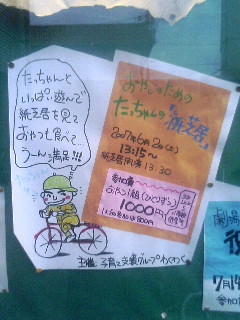 たっちゃんと
いっぱい遊んで
紙芝居を見て
おやつも食べて…
うーん満足!!!
おやこのための
たっちゃんの"紙芝居"
2007年6月2日(土)
13:15~
紙芝居開演 13:30
参加費
おやこ1組(ひとりずつ)
1000円
主催 子育て支援グループわくわく
7月14
参加